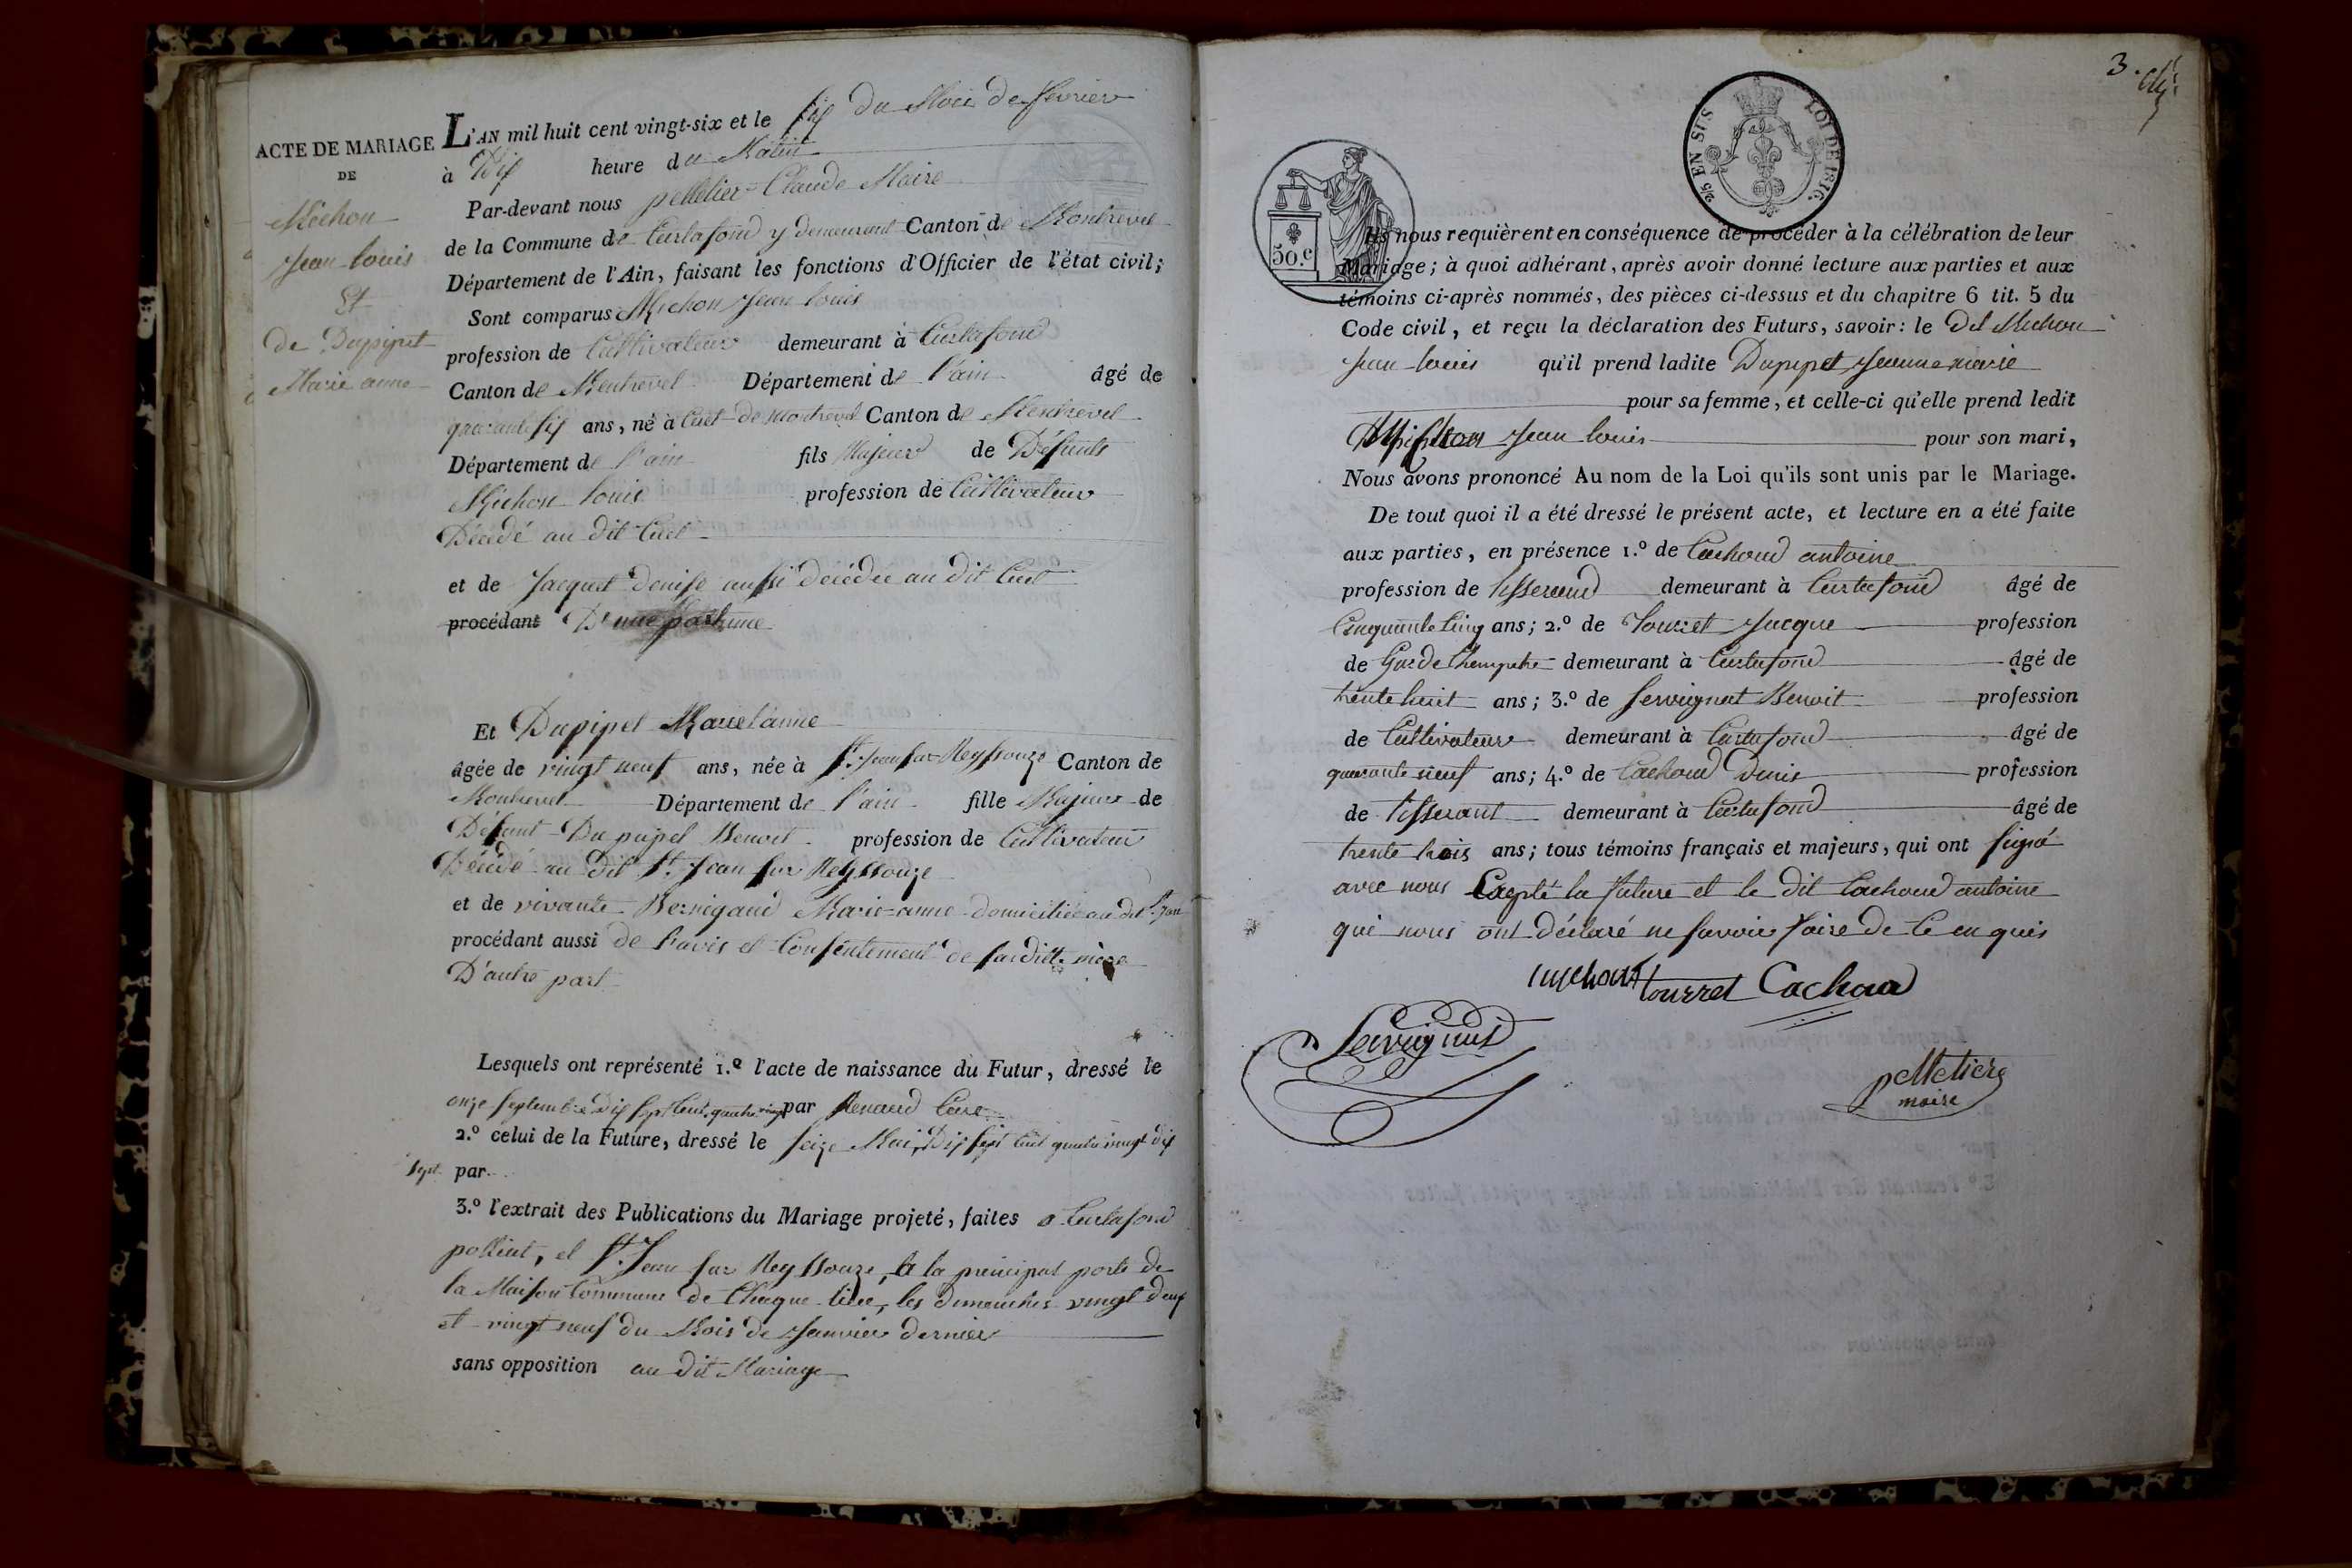 ACTE DE MARIAGE
DE
Michon
Jean louis
Et
de Dupipet
Marie anne
L'AN mil huit cent vingt-six et le six du Mois de fevrier
à Dix heure du Matin
Par-devant nous pelletier Claude Maire
de la Commune de Curtafond y demeurant Canton de Montrevel
Département de l'Ain, faisant les fonctions d'Officier de l'état civil;
Sont comparus Michon Jean louis
profession de Cultivateur demeurant à Curtafond
Canton de Montrevel Département de l'ain âgé de
quarante six ans, né à Cuet de montrevel Canton de Montrevel
Département de l'ain fils Majeur de Défunts
Michon louis profession de Cultivateur
Décédé au dit Cuet
et de Jacquet denise aussi décédée au dit Cuet
procédant D'une part
Et Dupipet Marie anne
âgée de vingt neuf ans, née à St. Jean sur Reyssouze Canton de
Montrevel Département de l'ain fille Majeure de
Défunt Dupipet Benoit profession de Cultivateur
Décédé au dit St. Jean sur Reyssouze
et de vivante Bernigaud Marie-anne domiciliée au dit St. Jean
procédant aussi de l'avis et Consentement de sa ditte mère
D'autre part
Lesquels ont représenté 1.º l'acte de naissance du Futur, dressé le
onze septembre Dix sept Cent quatre vingt par Renaud Curé
2.º celui de la Future, dressé le seize Mai Dix sept Cent quatre vingt dix
sept par
3.º l'extrait des Publications du Mariage projeté, faites a Curtafond
polliat, et St. Jean sur Reyssouze, A la principal porte de
la Maison Commune de Chaque lieu, les dimanches vingt deux
et vingt neuf du Mois de Janvier dernier
sans opposition au dit Mariage
3.
2/5 EN SUS
LOI DE 1816.
50.c
Ils nous requièrent en conséquence de procéder à la célébration de leur
Mariage; à quoi adhérant, après avoir donné lecture aux parties et aux
témoins ci-après nommés, des pièces ci-dessus et du chapitre 6 tit. 5 du
Code civil, et reçu la déclaration des Futurs, savoir: le Dit Michon
Jean louis qu'il prend ladite Dupipet Jeanne marie
pour sa femme, et celle-ci qu'elle prend ledit
Michon Jean louis pour son mari,
Nous avons prononcé Au nom de la Loi qu'ils sont unis par le Mariage.
De tout quoi il a été dressé le présent acte, et lecture en a été faite
aux parties, en présence 1.º de Cachoud antoine
profession de tisserand demeurant à Curtafond âgé de
Cinquante Cinq ans; 2.º de Touret Jacque profession
de Garde Champetre demeurant à Curtafond âgé de
trente huit ans; 3.º de Servignat Benoit profession
de Cultivateur demeurant à Curtafond âgé de
quarante neuf ans; 4.º de Cachoud Denis profession
de tisserant demeurant à Curtafond âgé de
trente trois ans; tous témoins français et majeurs, qui ont signé
avec nous Excepté la future et le dit Cachoud antoine
qui nous ont déclaré ne savoir faire de Ce enquis
michon tourret Cachou
Servignat
pelletier
maire